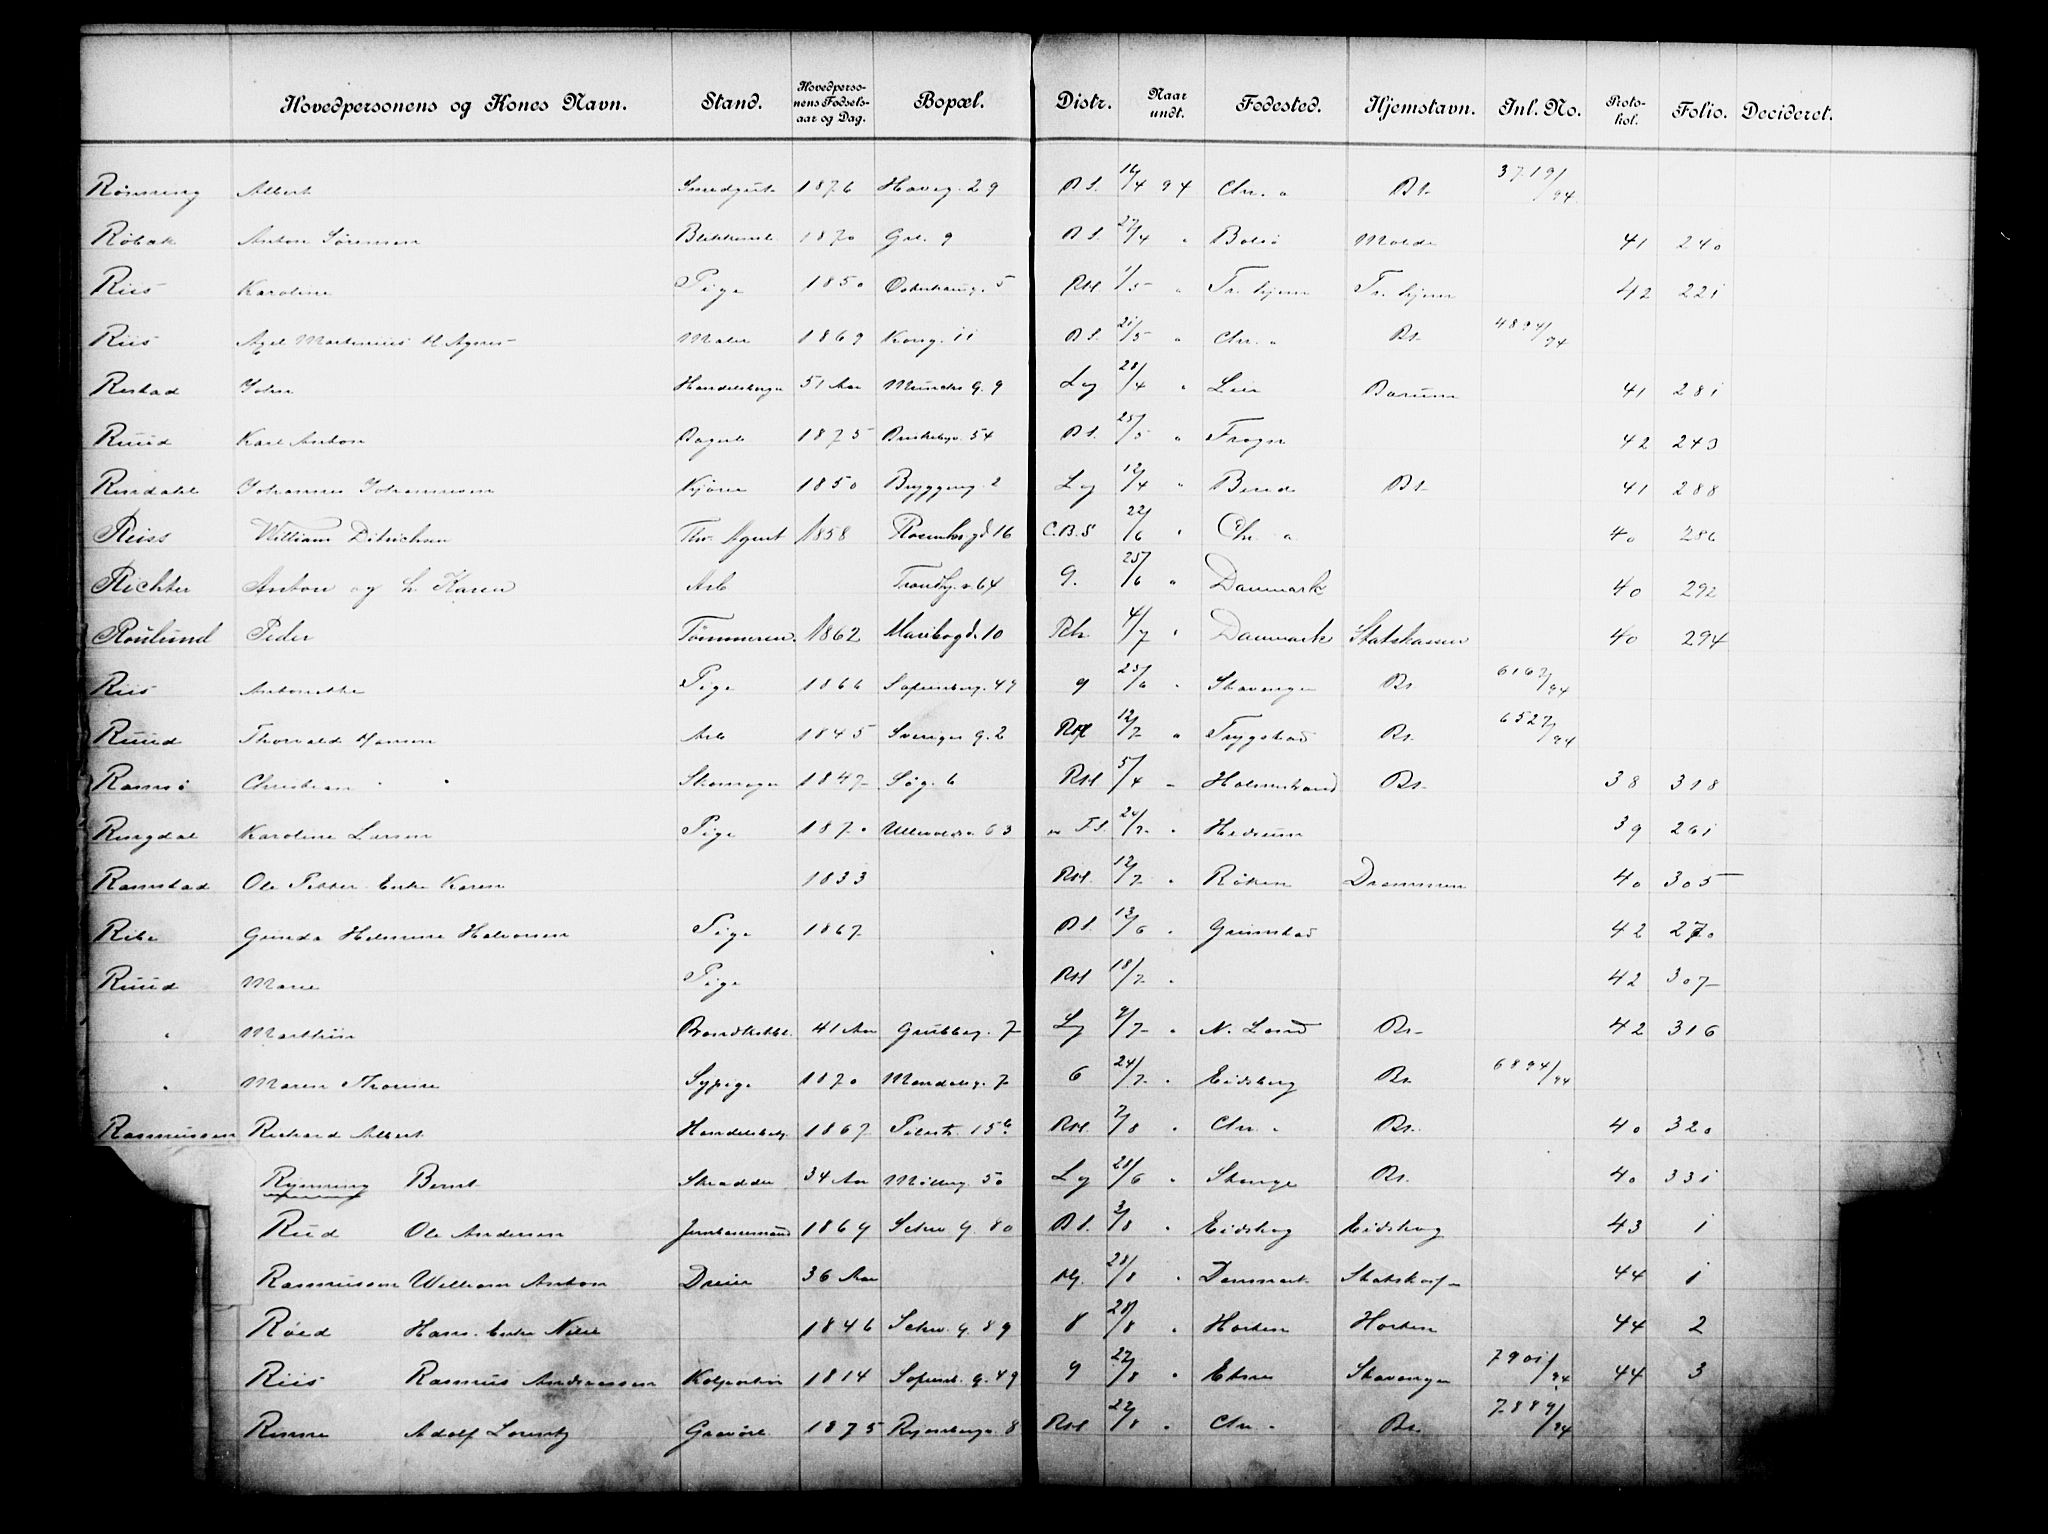 Hovedpersonens og Kones Navn. Stand. Hovedpersonens Fødselsaar og Dag. Bopæl. Distr. Naar undt. Fødested. Hjemstavn. Inl. No. Protokol. Folio. Decideret.
Rønning Albert Smedgut 1876 Haveg. 29 B S. 16/4 94 Chr. a Bt. 3719/94
Røbak Anton Sørensen 1870 Grl. 9 B S. 27/4 " Bolsø Molde 41 240
Riis Karoline Pige 1850 Osterhausg. 5 RH. 1/5 " Tr. hjem Tr. hjem 42 221
Riis Axel Martinius H Agnes Maler 1869 Kong. 11 B S. 21/5 " Chr. a Bt. 4894/94
Restad John 51 Aar Munchs g. 9 Lg 28/4 " Lier Bærum 41 281
Ruud Karl Anton Bagerl 1875 54 B S. 25/5 " Frogn 42 243
Rindahl Johannes Johannesen Kjører 1850 Bryggerg. 2 Lg 12/4 " Biri Bt. 41 288
Reiss William Ditrichsen Thr. Agent 1858 Rosenborgd. 16 C.B.S 22/6 " Chr. a 40 286
Richter Anton og h. Karen Arb Trondhj. v. 64 9. 25/6 " Danmark 40 292
Roulund Peder Tømmerm. 1862 Maribogd. 10 Rh. 4/7 " Danmark Statskassen 40 294
Riis Antonette Pige 1866 Sofienberg. 49 9 23/6 " Stavanger Bt. 6162/94
Ruud Thorvald Hansen Arb 1845 Sveriges g. 2 RH 12/7 " Trygstad Bt. 6527/94
Ramsø Christian " " Skomager 1847 Søg. 6 RH 5/4 " Holmestrand Bt. 38 318
Ringdal Karoline Larsen Pige 1870 Ullevoldsv. 63 F S. 24/2 " Hedrum 39 261
Ramstad Ole Petter Enke Karen 1833 RH. 12/7 " Røken Drammen 40 305
Ribe Gunda Helmine Halvorsen Pige 1867 B S. 13/6 " Grimstad 42 270
Ruud Marie Pige RH 18/7 " 42 307
" Matthias 41 Aar Grubbeg. 7 Lg 9/7 " N. Land Bt. 42 316
" Maren Thorine Sypige 1870 Mandalsg. 7 6 24/7 " Eidsberg Bt. 6894/94
Rasmussen Richard Albert Handelsbetj. 1867 Pilestr. 15 b RH. 7/8 " Chr. " Bt. 40 320
Rynning Bernt Skrædder 34 Aar Møllerg. 50 Lg 28/6 " Stange Bt. 40 331
Rud Ole Andersen Jernbanemand 1869 Schw. g. 80 B S. 3/8 " Eidskog Eidskog 43 1
Rasmussen William Anton Dreier 36 Aar 28/8 " Danmark Statskas 44 1
Røed Hans. Enke 1846 Schw. g. 89 8 28/8 " Horten Horten 44 2
Riis Rasmus Andreassen Kolportør 1814 Sofienb. g. 49 9 22/8 " Etne Stavanger 7901/94 44 3
Rime Adolf Lorentz Gravørl. 1875 8 RH 22/8 " Chr. " Bt. 7889/94